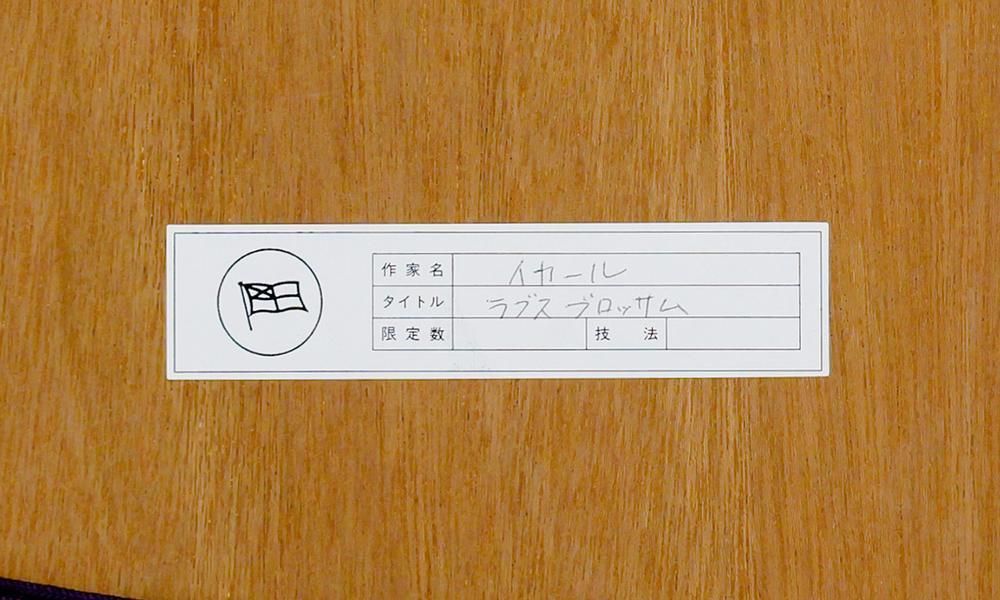 作家名 イカール
タイトル ラブス ブロッサム
限定数 技法